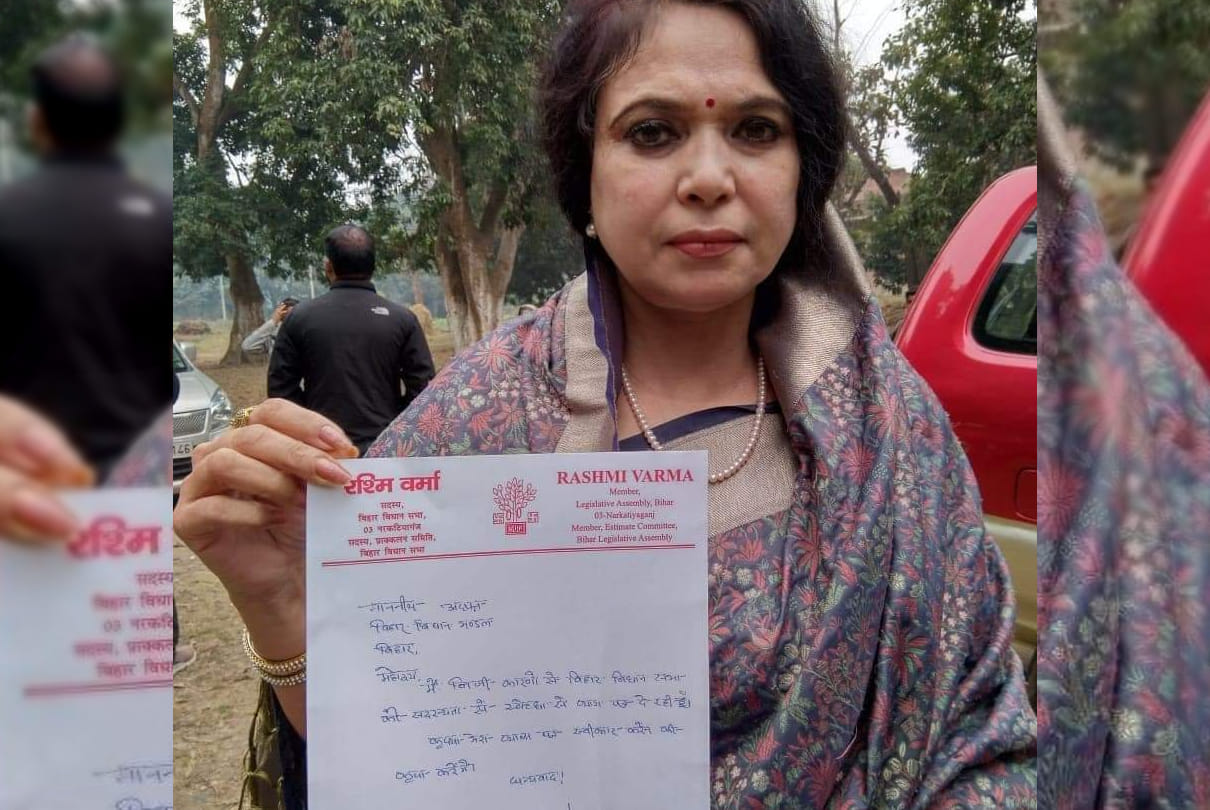 रश्मि वर्मा
सदस्य,
बिहार विधान सभा,
03 नरकटियागंज
सदस्य, प्राक्कलन समिति,
बिहार विधान सभा
RASHMI VARMA
Member,
Legislative Assembly, Bihar
03-Narkatiyaganj
Member, Estimate Committee,
Bihar Legislative Assembly
माननीय अध्यक्ष
बिहार विधान मण्डल
बिहार,
महोदय,
मैं निजी कारणों से बिहार विधान सभा
की सदस्यता से स्वेच्छा से त्याग पत्र दे रही हूँ।
कृपया मेरा त्याग पत्र स्वीकार करने की
कृपा करेंगे।
धन्यवाद!
रश्मि
सदस्य
बिहार विधा
03 नरकटि
सदस्य, प्राक्कल
बिहार विधा